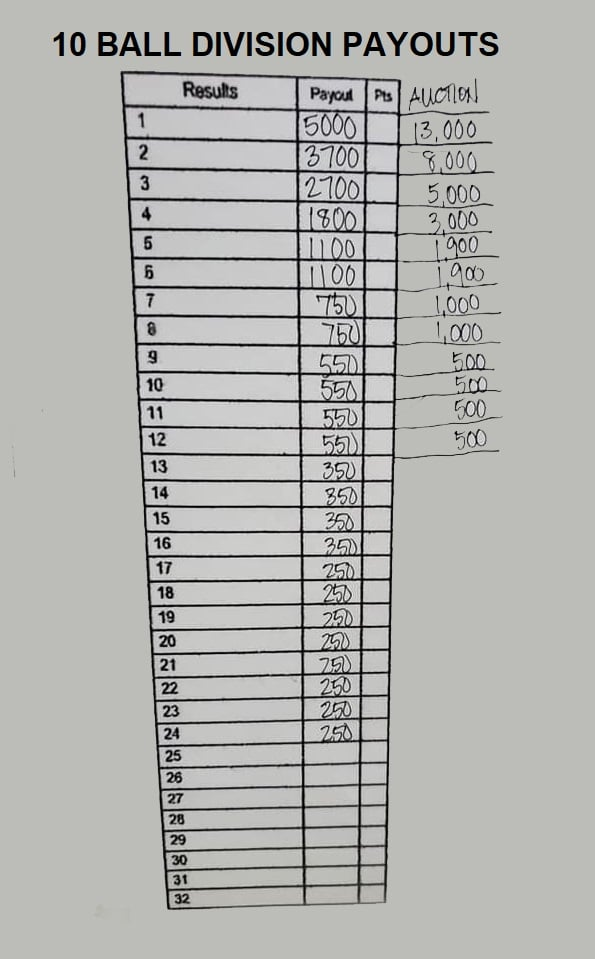 10 BALL DIVISION PAYOUTS
Results Payout Pts AUCTION
1 5000 13,000
2 3700 8,000
3 2700 5,000
4 1800 3,000
5 1100 1,900
6 1100 1,900
7 750 1,000
8 750 1,000
9 550 500
10 550 500
11 550 500
12 550 500
13 350
14 350
15 350
16 350
17 250
18 250
19 250
20 250
21 250
22 250
23 250
24 250
25
26
27
28
29
30
31
32